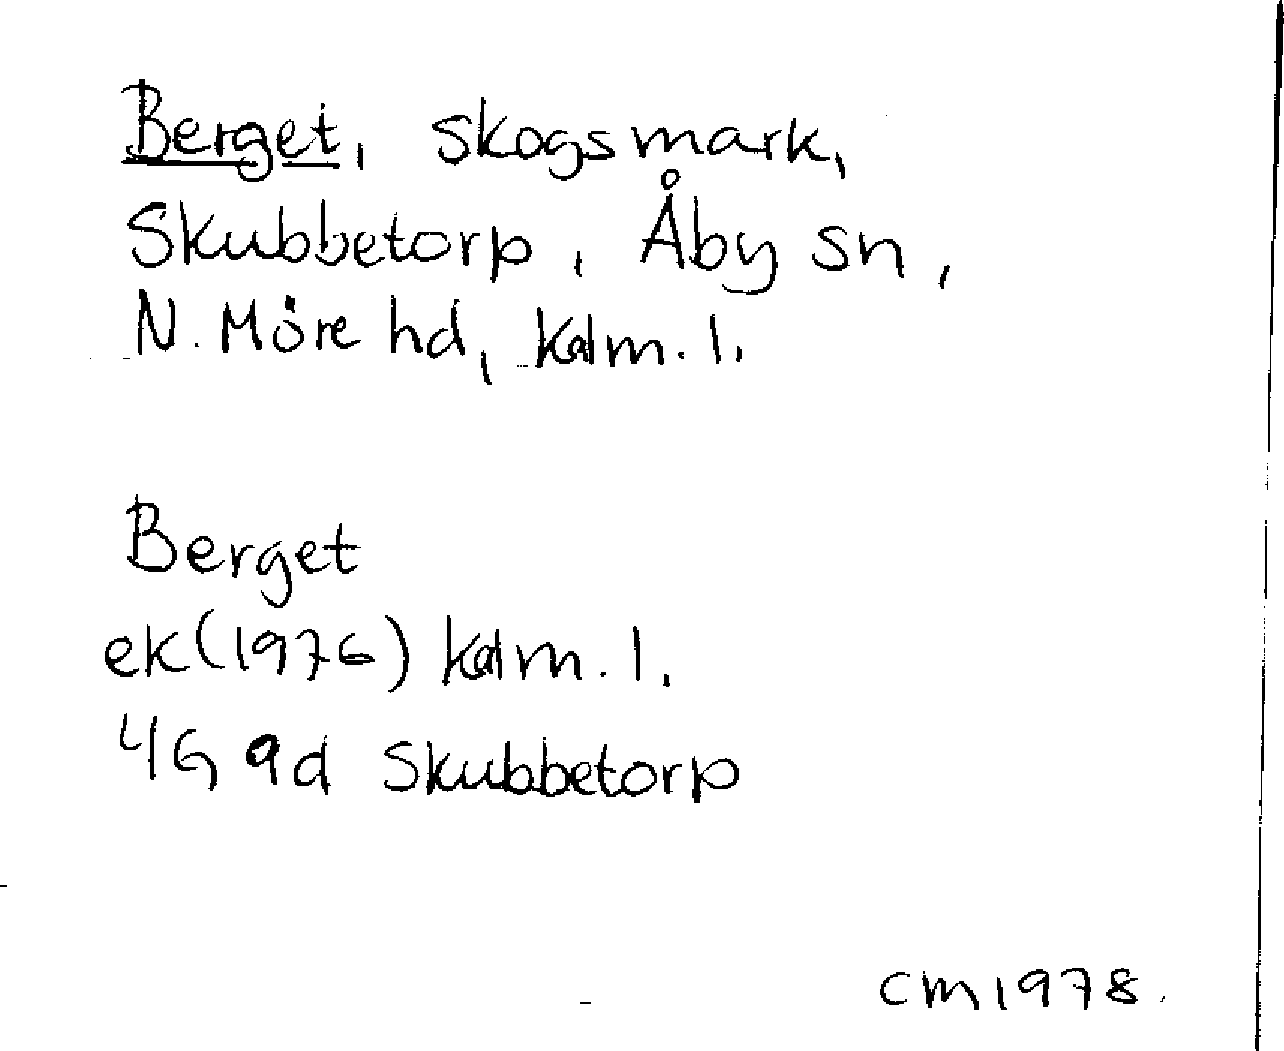 Berget, skogsmark,
Skubbetorp, Åby sn,
N. Möre hd, Kalm. l.
Berget
ek (1976) Kalm. l.
4G 9d Skubbetorp
CM 1978.